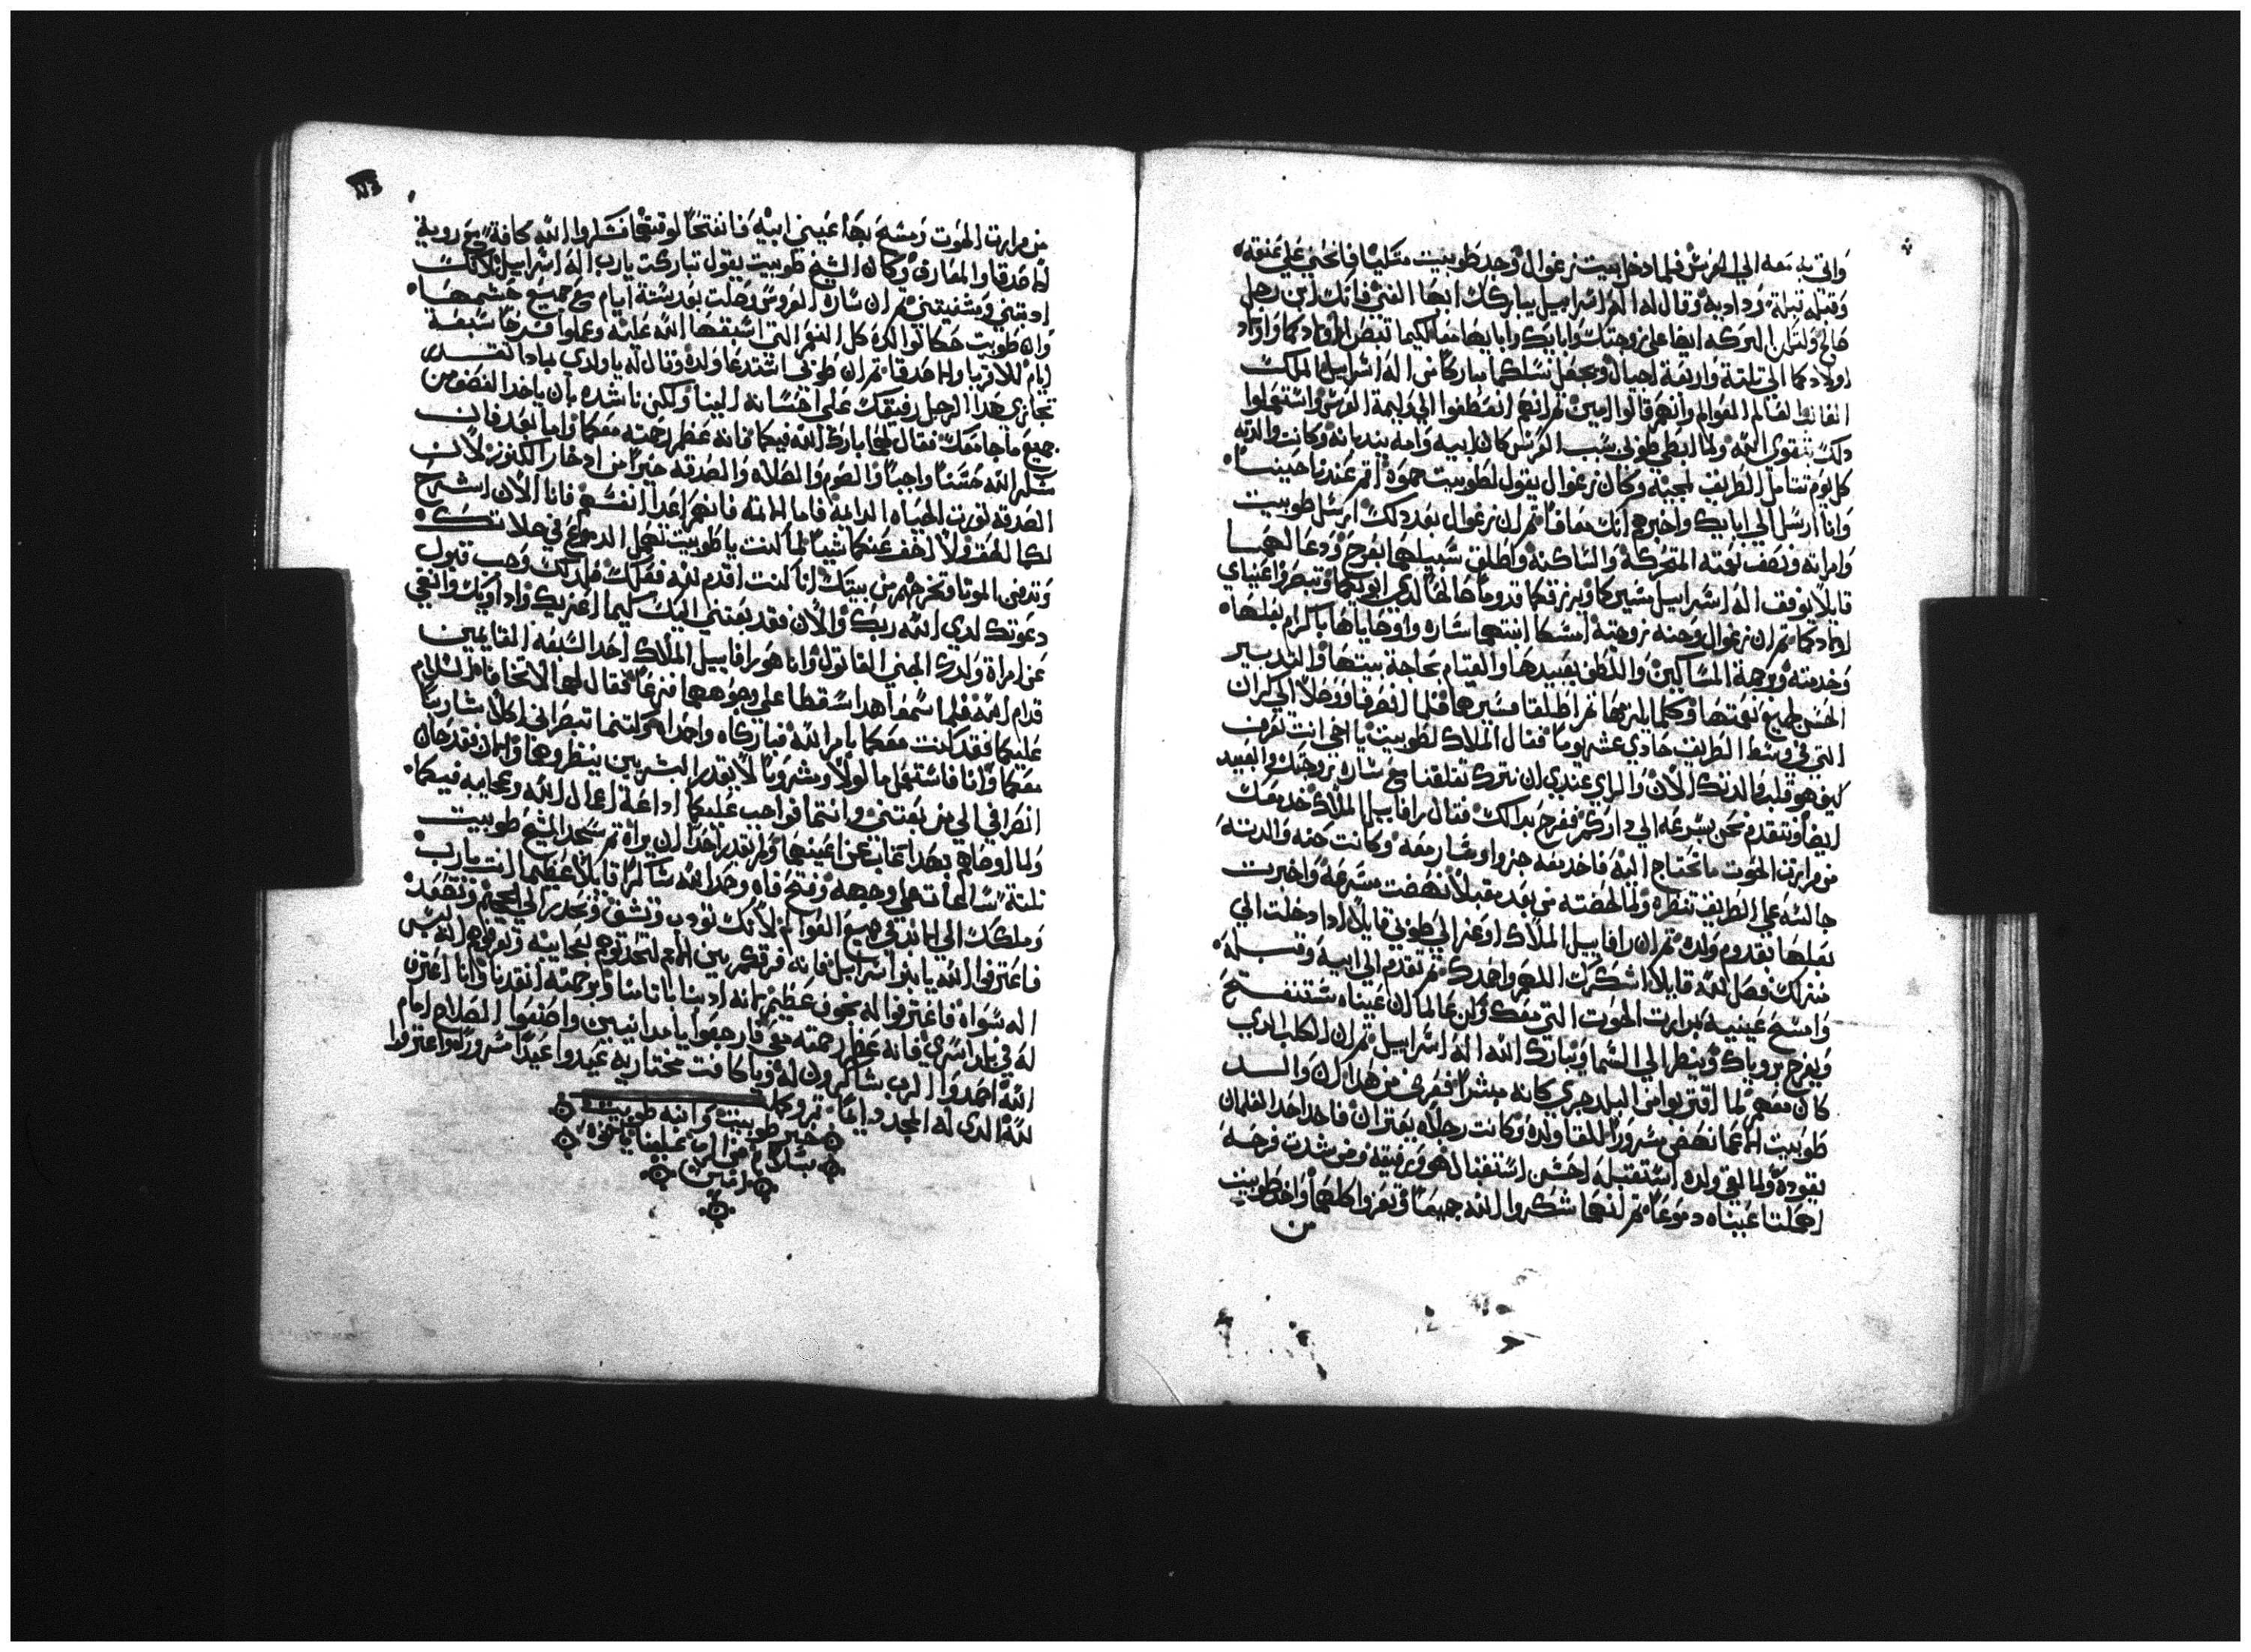 واتي به معه الي العرش فلما دخل بيت زعوال وجد طوبيت متكيا فانحني علي عنقه
وقبله قبلة ودادية وقال له اله اسراييل يباركك ايها الفتي فانك ابن رجل
صالح ولتحل البركه ايضا علي زوجتك وابايك وابايها معا لكيما تبصر اولادكما واولاد
اولادكما الي تلتة واربعة اجيال ويجعل نسلكما مباركا من اله اسراييل المالك
الضابط لعالم العوالم وانهم قالوا امين ثم انهم انعطفوا الي وليمة العرس واستعملوا
دلك بتقوي الله ولما ابطي طوبي بسبب العرس كان ابيه وامه يندبانه وكانت والدته
كل يوم تتامل الطريق لمجيه وكان زعوال يقول لطوبيت حموه اقم عندنا حينا
وانا ارسل الي ابايك واخبرهم انك معافا ثم ان زعوال بعد دلك ارسل طوبيت
وامراته ونصف نعمته المتحركة والساكنة واطلق سبيلهما بفرح ودعا لهما
قايلا يوفق اله اسراييل مسيركما ويرزقكما قدوما صالحا لدي ابويكما وتبصر عيناي
اولادكما ثم ان زعوال وحنه زوجته امسكا ابنتهما ساره واوصاياها باكرام بعلها
وخدمته وبرحمة المساكين واللطف بعبيدها والقيام بحاجة بيتها والتدبير
الحسن لجميع نعمتها وكلما يلزمها ثم اطلقا مسيرها فلما انصرفا ووصلا الي كران
التي في وسط الطريق حادي عشر يوما فقال الملاك لطوبيت يا اخي انت تعرف
كيف هو قلب والدتك الان والراي عندي ان نترك تعلقنا مع ساره زوجتك والعبيد
ايضا ونتقدم نحن بسرعه الي داركم ففرح بدالك فقال رافاييل الملاك خد معك
من مرارت الحوت ما نحتاج اليه فاخد معه جزوا وسار معه وكانت حنه والدته
جالسه علي الطريق تنتظره ولما لحضته من بعد مقبلا نهضت مسرعة واخبرت
بعلها بقدوم ولده ثم ان رافاييل الملاك اوعز الي طوبي قايلا ادا دخلت الي
منزلك فصل لله قايلا اشكرك اللهم واحمدك ثم تقدم الي ابيه وقبله
وامسح عينيه بمرارت الحوت التي معك وكن عالما ان عيناه ستنفتح
ويفرح بروياك وينظر الي السما ويبارك الله اله اسراييل ثم ان الكلب الدي
كان معهم لما اقتربوا من البلد جري كانه مبشرا ففرح من هناك والد
طوبيت الاعما نهض مسرورا للقا ولده وكانت رجلاه يعتران فاخد احد الغلمان
يقوده ولما لقي ولده استقبله احسن استقبال هو ورفيقه ومن شدت فرحه
اهملتا عيناه دموعا ثم انهما شكروا الله جميعا وتعزوا كلهم واخد طوبيت
من
من مرارت الحوت ومسح بها عيني ابيه فانفتحا لوقتهما فشكروا الله كافة مع روية
الاصدقا والمعارف وكان الشيخ طوبيت يقول تباركت يارب اله اسراييل لانك
ادبتني وشفيتني ثم ان ساره العروس وصلت بعد ستة ايام مع جميع حشمها
وان طوبيت حكا لوالده كل النعم التي اسبغها الله عليه وعملوا فرحا سبعة
ايام للاقربا والاصدقا ثم ان طوبي استدعا ولده وقال له يا ولدي بمادا نقدر
نجازي هدا الرجل رفيقك علي احسانه الينا ولكن ناشده بان ياخد النصف من
جميع ما جا معك فقال لهما بارك الله فيكما فانه عظم رحمته معكما واما بعد فان
شكر الله حسنا واجبا والصوم والصلاه والصدقه خيرا من ادخار الكنوز لان
الصدقة تورت الحياه الدايمة فاما الاتمة فانهم اعدا انفسهم فانا الان اشرح
لكما الحق ولا اخف عنكما شيا لما كنت يا طوبيت تهمل الدموع في صلاتك
وتدفن الموتا وتخرجهم من بيتك انا كنت اقدم لله فعلك فلدلك وجب قبول
دعوتك لدي الله ربك والان فقد بعتني اليك كيما اعزيك واداويك وانفي
عن امراة ولدك الجني القاتول وانا هو رافاييل الملاك احد السبعه القايمين
قدام الله فلما سمعا هدا سقطا علي وجوههما فزعا فقال لهما لا تخافا السلام
عليكما فقد كنت معكما بامر الله فباركاه واحمداه كلتنما تبصراني اكلا شاربا
معكما وانا فاستعمل ماكولا ومشروبا لا يقدر البشريين ينظروهما والان فقد حان
انصرافي الي من بعتني وانتما فواجب عليكما اداعة اعمال الله وعجايبه فيكما
ولما اوصاهم بهدا غاب عن اعينهما ولم يقدر احدا ان يراه ثم سجد الشيخ طوبيت
تلتة ساعات علي وجهه وفتح فاه وحمد الله شاكرا قايلا عظيما انت يارب
وملكك الي الابد في جميع العوالم لانك تودب وتشفي وتحدر الي الجحيم وتصعد
فاعترفوا لله يا بنو اسراييل فانه فرقكم بين الامم لتحدتوهم بعجايبه وتعرفوهم انه ليس
اله سواه فاعترفوا له بخوف عظيم لانه ادبنا باتامنا وبرحمته انقدنا وانا اعترف
له في بلد اسري فانه عظم رحمته معي فارجعوا يا مدانيين واصنعوا الصلاح امام
الله احمدوا الرب شاكرون له ويا كافت مختاريه عيدوا عيدا مسرورا واعترفوا
لله الدي له المجد دايما تم وكمل
خبر طوبيت وابنه طوبيت
بسلام من الرب علينا
امين